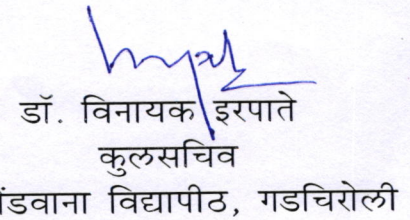 डॉ. विनायक इरपाते
कुलसचिव
ंडवाना विद्यापीठ, गडचिरोली